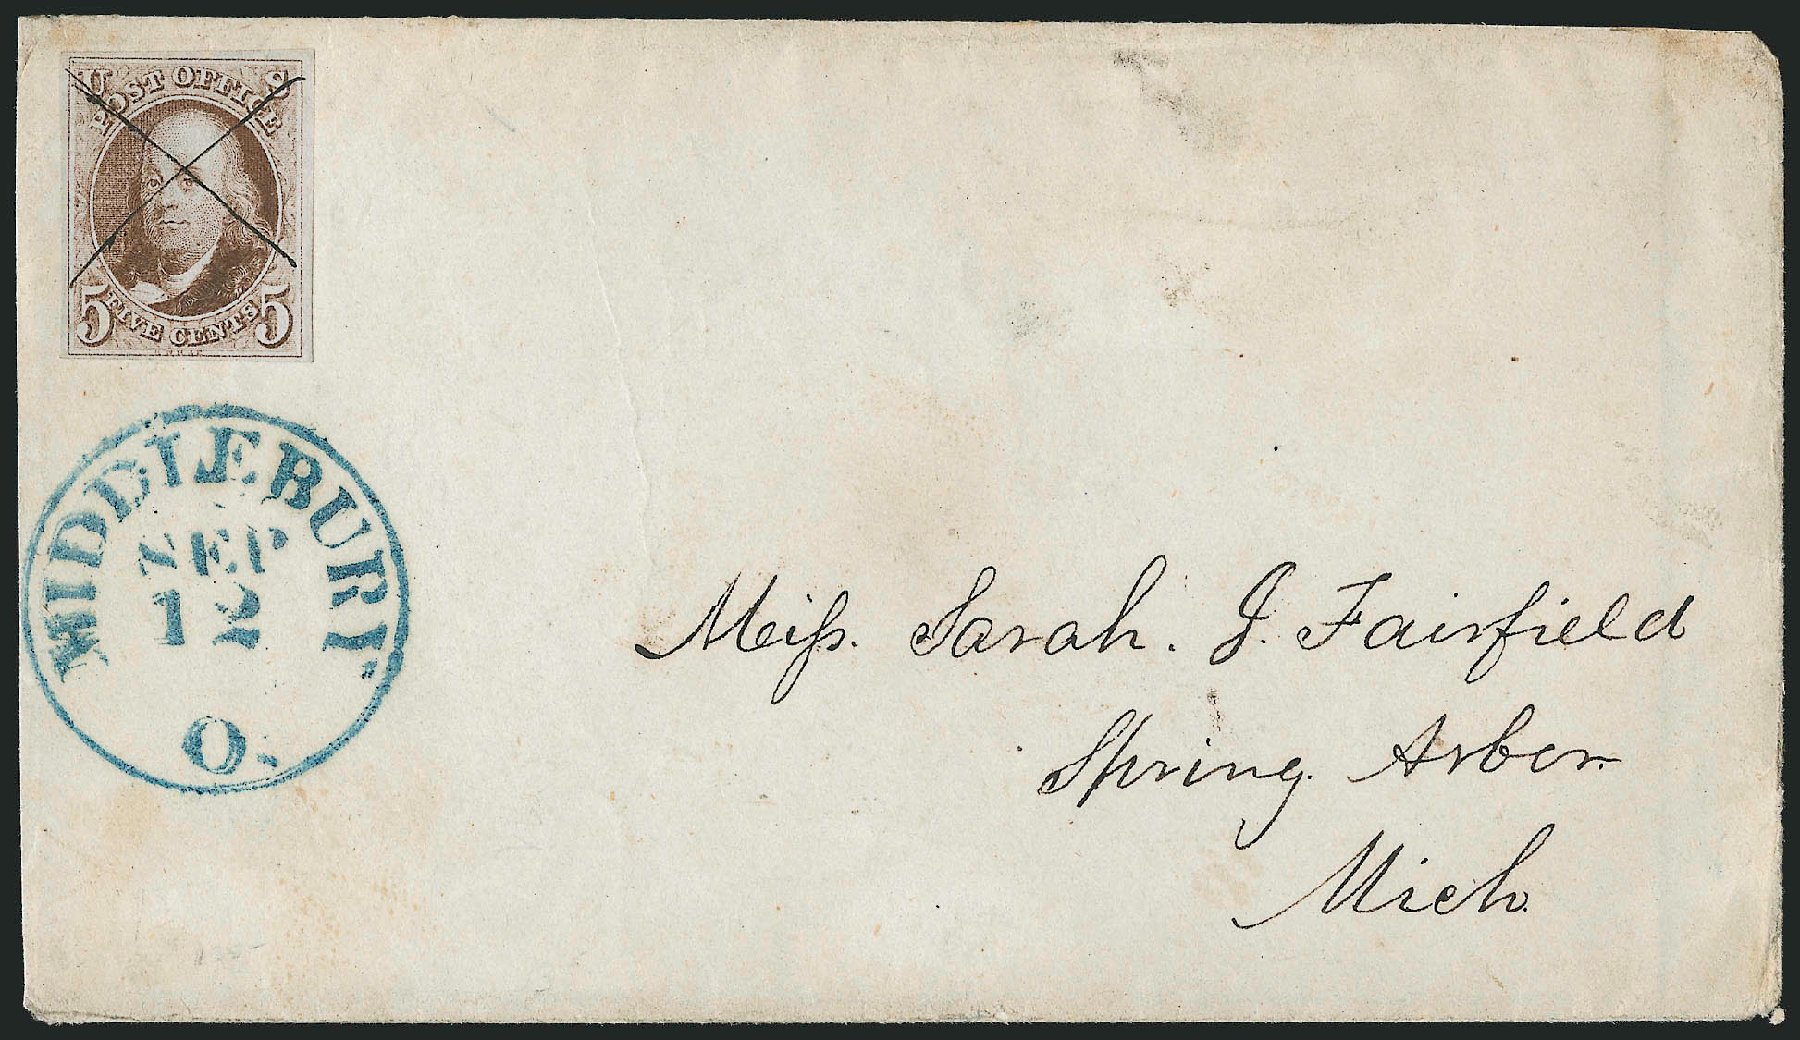 U S
POST OFFICE
5 FIVE CENTS 5
MIDDLEBURY
SEP
12
O.
Miſs. Sarah. J. Fairfield
Spring. Arbor.
Mich.